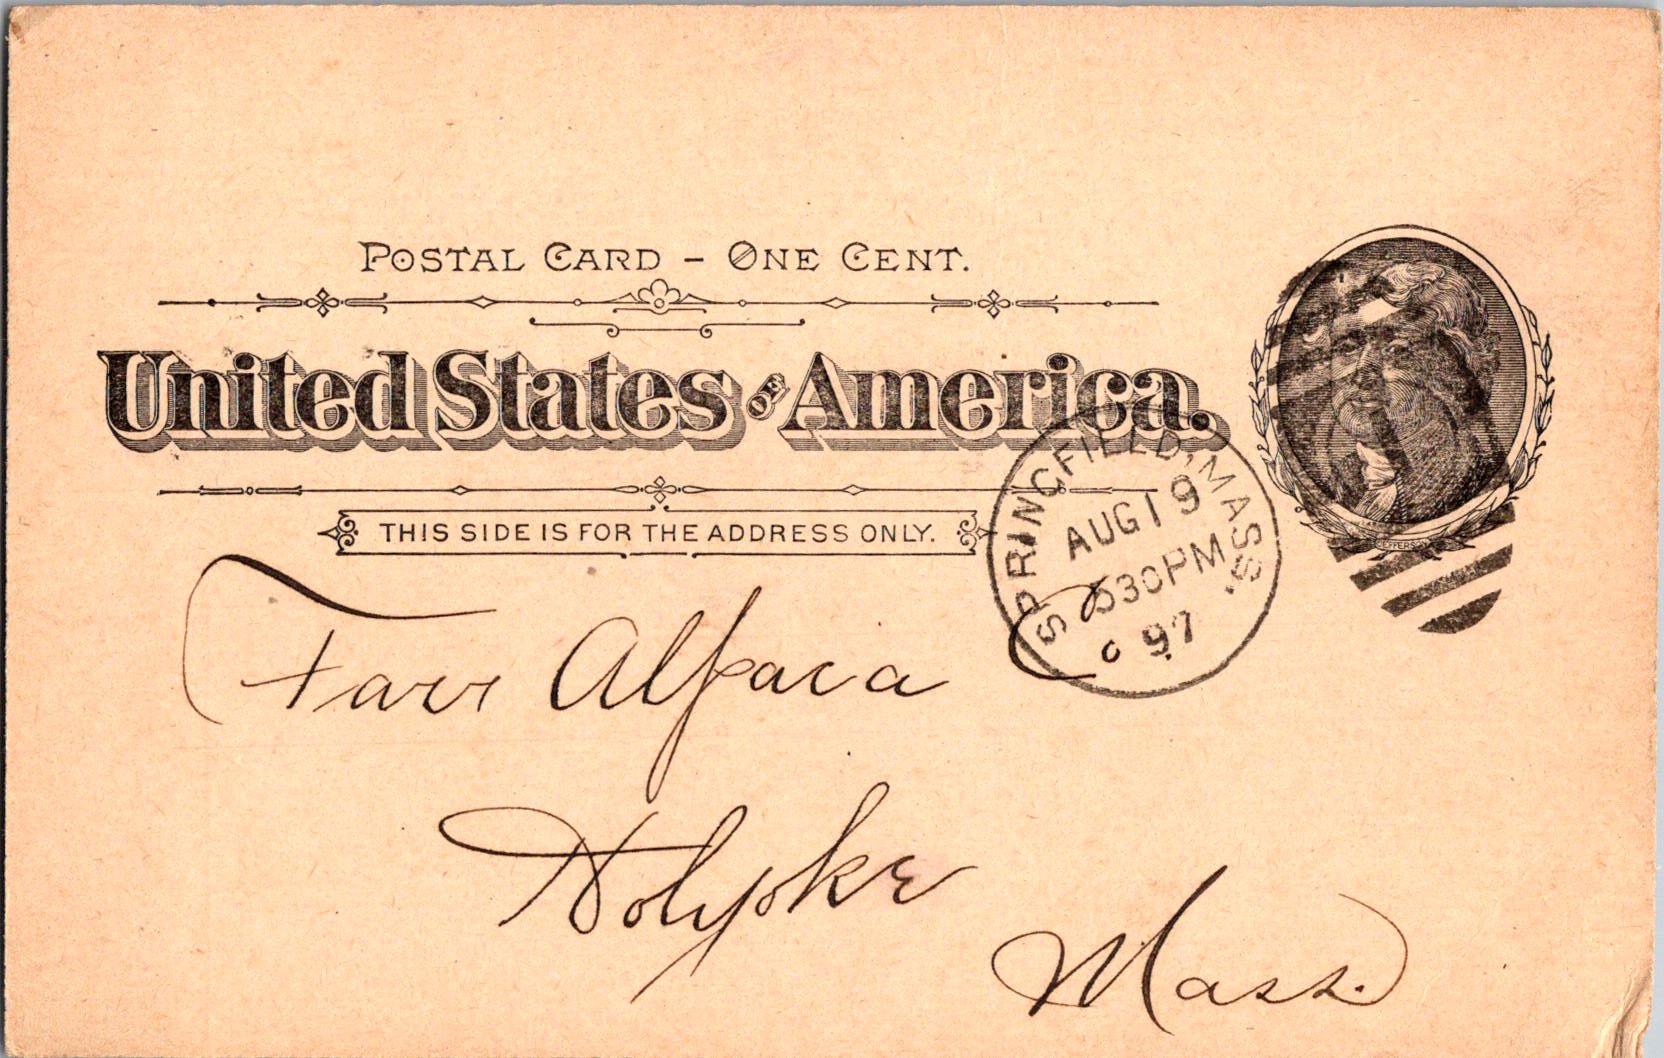 POSTAL CARD – ONE CENT.
United States OF America.
THIS SIDE IS FOR THE ADDRESS ONLY.
SPRINGFIELD, MASS.
AUG 19
530PM
97
Farr Alpaca Co
Holyoke
Mass.